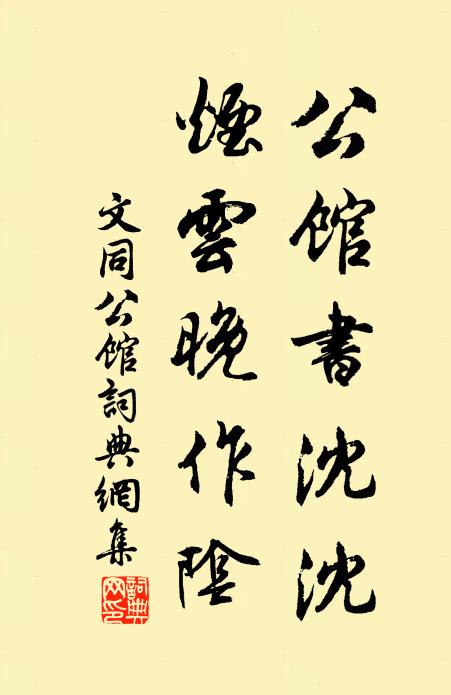 公館書沈沈
煙雲晚作陰
文同公館詞典網集
詞典網印